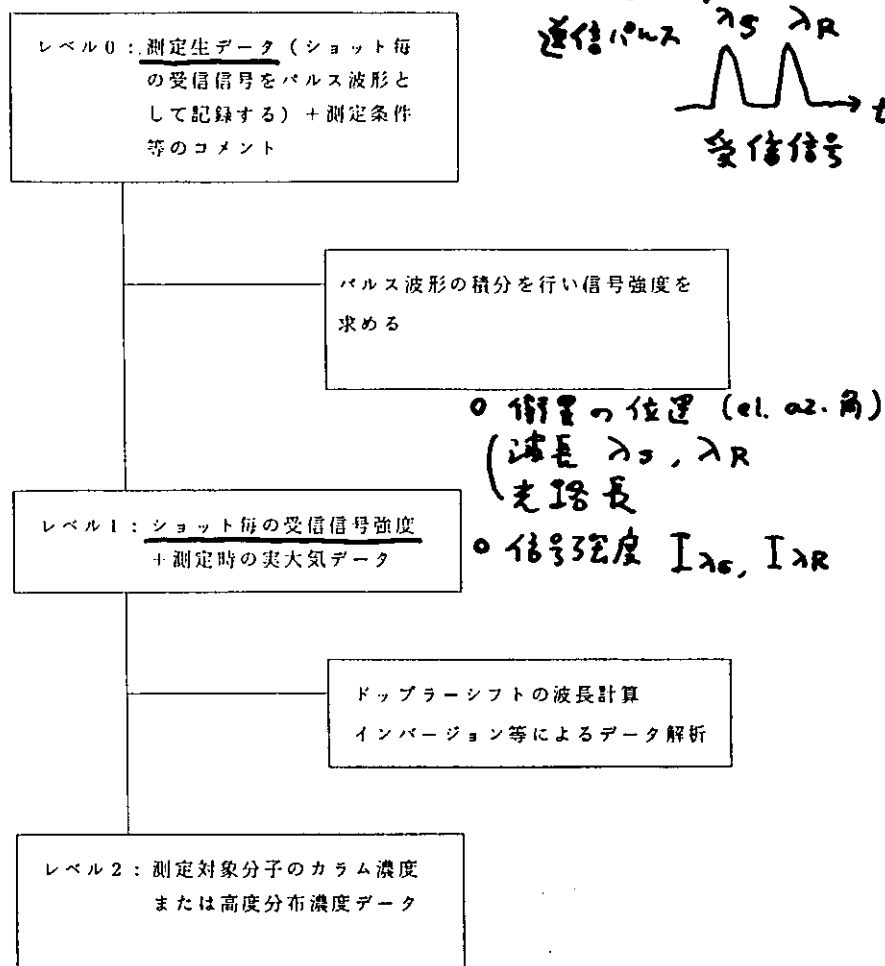 レベル0：測定生データ（ショット毎
の受信信号をパルス波形と
して記録する）＋測定条件
等のコメント
送信パルス
λs λR
t
受信信号
パルス波形の積分を行い信号強度を
求める
○ 衛星の位置 (el. az. 角)
波長 λs, λR
光路長
レベル1：ショット毎の受信信号強度
＋測定時の実大気データ
○ 信号強度 Iλs, IλR
ドップラーシフトの波長計算
インバージョン等によるデータ解析
レベル2：測定対象分子のカラム濃度
または高度分布濃度データ